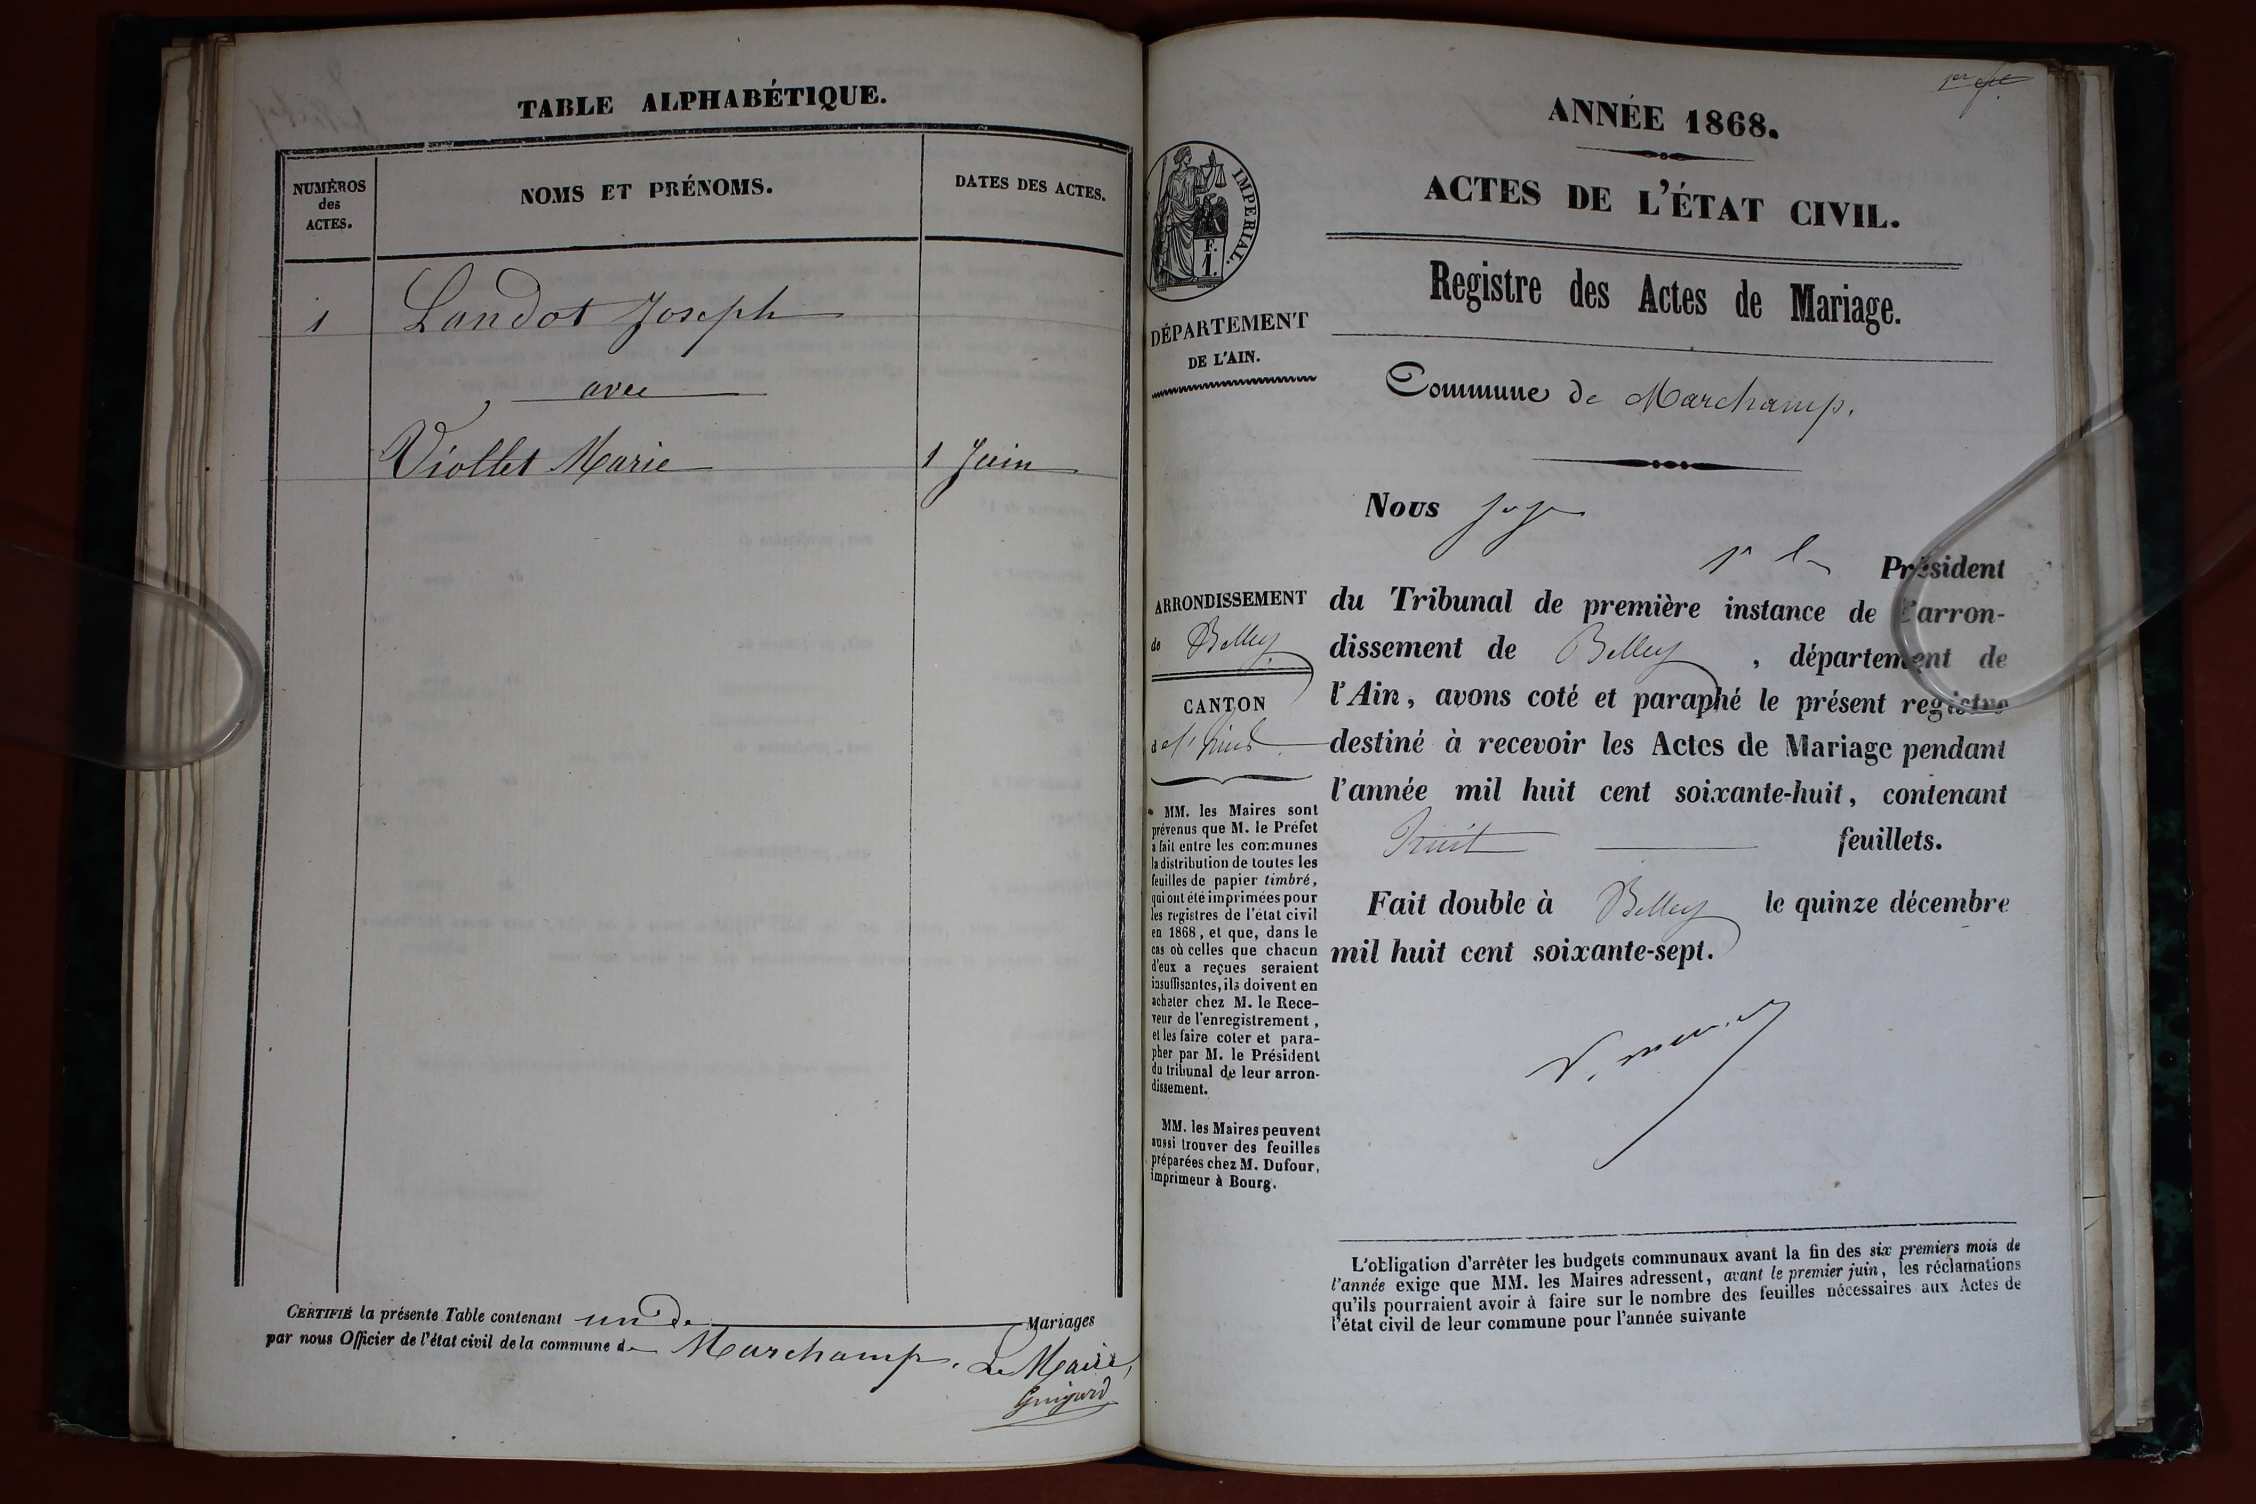 TABLE ALPHABÉTIQUE.
NUMÉROS
des
ACTES.
NOMS ET PRÉNOMS.
DATES DES ACTES.
1 Landot Joseph
avec
Viollet Marie 1 Juin
CERTIFIÉ la présente Table contenant un de Mariages
par nous Officier de l'état civil de la commune de Marchamp. Le Maire,
Guigard
1er
ANNÉE 1868.
ACTES DE L'ÉTAT CIVIL.
Registre des Actes de Mariage.
IMPERIAL.
F.
1.
DÉPARTEMENT
DE L'AIN.
Commune de Marchamp.
ARRONDISSEMENT
de Belley
CANTON
de
MM. les Maires sont
prévenus que M. le Préfet
a fait entre les communes
la distribution de toutes les
feuilles de papier timbré,
qui ont été imprimées pour
les registres de l'état civil
en 1868, et que, dans le
cas où celles que chacun
d'eux a reçues seraient
insuffisantes, ils doivent en
acheter chez M. le Rece-
veur de l'enregistrement,
et les faire coter et para-
pher par M. le Président
du tribunal de leur arron-
dissement.
MM. les Maires peuvent
aussi trouver des feuilles
préparées chez M. Dufour,
imprimeur à Bourg.
Nous Juge
Président
du Tribunal de première instance de l'arron-
dissement de Belley, département de
l'Ain, avons coté et paraphé le présent registre
destiné à recevoir les Actes de Mariage pendant
l'année mil huit cent soixante-huit, contenant
huit feuillets.
Fait double à Belley le quinze décembre
mil huit cent soixante-sept.
L'obligation d'arrêter les budgets communaux avant la fin des six premiers mois de
l'année exige que MM. les Maires adressent, avant le premier juin, les réclamations
qu'ils pourraient avoir à faire sur le nombre des feuilles nécessaires aux Actes de
l'état civil de leur commune pour l'année suivante